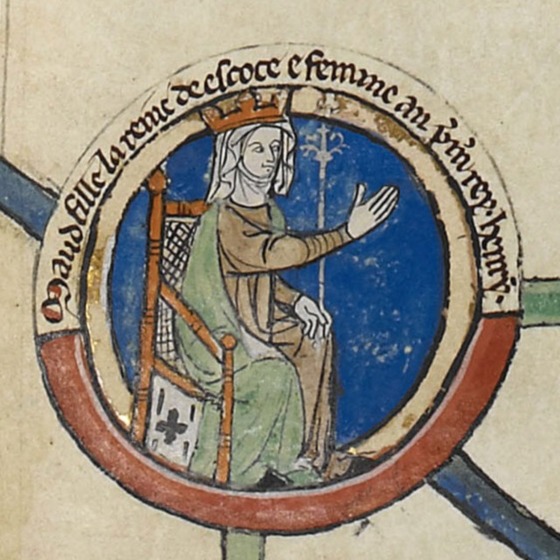 Maud fille la reine de escoce e femme au p͛m rey henri.